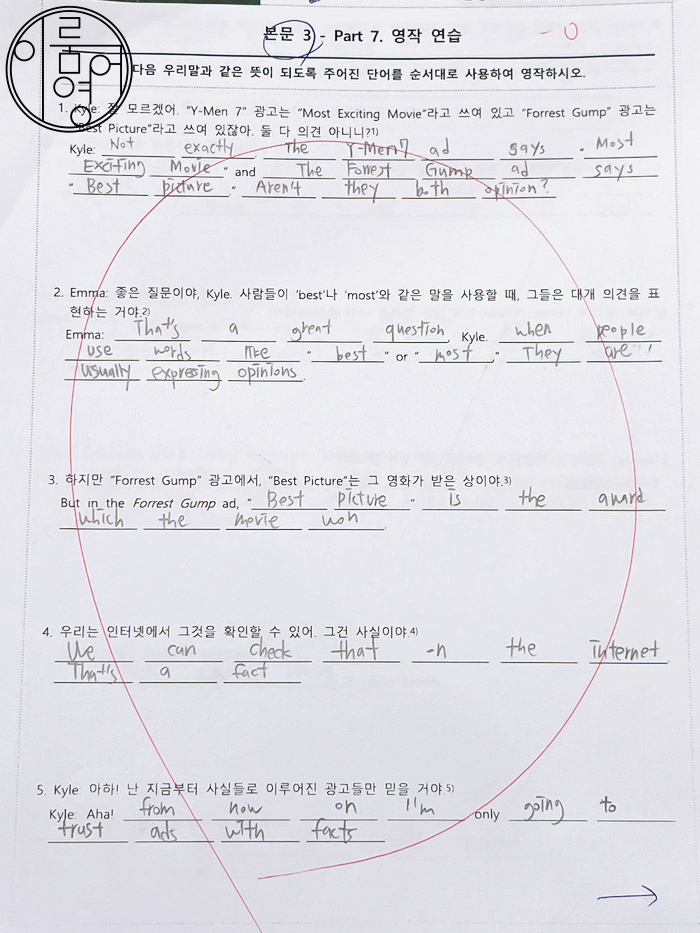 이름영어
본문 3 - Part 7. 영작 연습
- 0
다음 우리말과 같은 뜻이 되도록 주어진 단어를 순서대로 사용하여 영작하시오.
1. Kyle: 잘 모르겠어. “Y-Men 7” 광고는 “Most Exciting Movie”라고 쓰여 있고 “Forrest Gump” 광고는
“Best Picture”라고 쓰여 있잖아. 둘 다 의견 아니니?1)
Kyle: Not exactly. The Y-Men 7 ad says “ Most
Exciting Movie ” and The Forrest Gump ad says
“ Best picture .” Aren't they both opinion?
2. Emma: 좋은 질문이야, Kyle. 사람들이 ‘best’나 ‘most’와 같은 말을 사용할 때, 그들은 대개 의견을 표
현하는 거야.2)
Emma: That's a great question, Kyle. when people
use words like “ best ” or “ most ,” They are
usually expressing opinions.
3. 하지만 “Forrest Gump” 광고에서, “Best Picture”는 그 영화가 받은 상이야.3)
But in the Forrest Gump ad, “ Best picture ” is the award
which the movie won.
4. 우리는 인터넷에서 그것을 확인할 수 있어. 그건 사실이야.4)
We can check that -n the internet.
That's a fact
5. Kyle: 아하! 난 지금부터 사실들로 이루어진 광고들만 믿을 거야.5)
Kyle: Aha! from now on I'm only going to
trust ads with facts